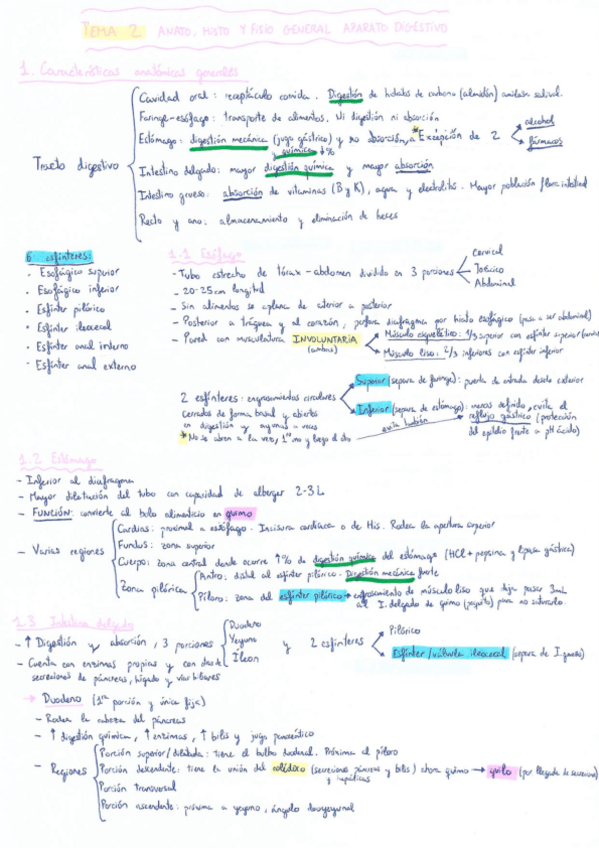 TEMA 2 ANATO, HISTO Y FISIO GENERAL APARATO DIGESTIVO
1. Características anatómicas generales
Tracto digestivo
Cavidad oral: receptáculo comida. Digestión de hidratos de carbono (almidón) amilasa salival.
Faringe-esófago: transporte de alimentos. Ni digestión ni absorción
Estómago: digestión mecánica (jugo gástrico) y no absorción, a *Excepción de 2 alcohol
y química ↓% fármacos
Intestino delgado: mayor digestión química y mayor absorción
Intestino grueso: absorción de vitaminas (B y K), agua y electrolitos. Mayor población flora intestinal
Recto y ano: almacenamiento y eliminación de heces
6 esfínteres:
· Esofágico superior
· Esofágico inferior
· Esfínter pilórico
· Esfínter ileocecal
· Esfínter anal interno
· Esfínter anal externo
1.1 Esófago
- Tubo estrecho de tórax-abdomen dividido en 3 porciones
Cervical
Torácico
Abdominal
- 20-25cm longitud
- Sin alimentos se aplana de anterior a posterior
- Posterior a tráquea y al corazón, perfora diafragma por hiato esofágico (pasa a ser abdominal)
- Pared con musculatura INVOLUNTARIA
(ambos)
Músculo esquelético: 1/3 superior con esfínter superior
Músculo liso: 2/3 inferiores con esfínter inferior
2 esfínteres: engrosamientos circulares
cerrados de forma basal y abiertos
en digestión y
*No se abren a la vez, 1º uno y luego el otro
Superior (separa de faringe): puerta de entrada desde exterior
Inferior (separa de estómago): menos definido, evita el
reflujo gástrico (protección
del epitelio frente a pH ácido)
1.2 Estómago
- Inferior al diafragma
- Mayor dilatación del tubo con capacidad de albergar 2-3L
- FUNCIÓN: convierte al bolo alimenticio en quimo
- Varias regiones
Cardias: proximal a esófago. Incisura cardíaca o de His. Rodea la apertura superior
Fundus: zona superior
Cuerpo: zona central donde ocurre ↑% de digestión química del estómago (HCl + pepsina y lipasa gástrica)
Zona pilórica
Antro: distal al esfínter pilórico. Digestión mecánica fuerte
Píloro: zona del esfínter pilórico → engrosamiento de músculo liso que deja pasar 3mL
al I. delgado de quimo (poquito) para no saturarlo.
1.3 Intestino delgado
- ↑ Digestión y absorción, 3 porciones
Duodeno
Yeyuno
Íleon
y 2 esfínteres
Pilórico
Esfínter/válvula ileocecal (separa de I.grueso)
- Cuenta con enzimas propias y con
secreciones de páncreas, hígado y vías biliares
→ Duodeno (1ª porción y única fija)
- Rodea la cabeza del páncreas
- ↑ digestión química, ↑ enzimas, ↑ bilis y jugo pancreático
- Regiones
Porción superior/dilatada: tiene el bulbo duodenal. Próxima al píloro
Porción descendente: tiene la unión del colédoco (secreciones páncreas y bilis) ahora quimo → quilo (por llegada de secreciones)
y hepáticas
Porción transversal
Porción ascendente: próxima a yeyuno, ángulo duoyeyunal